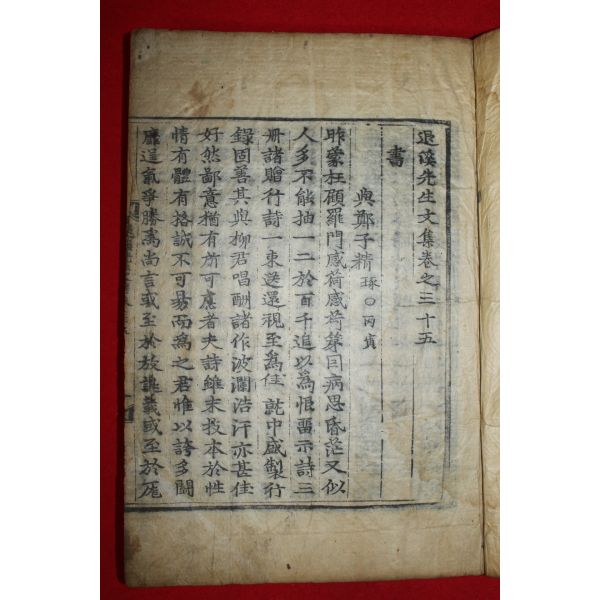 退溪先生文集卷之三十五
書
與鄭子精琢○丙寅
昨蒙枉顧羅門感荷感荷第因病思昏茫又似
人多不能抽一二於百千追以為恨留示詩三
冊諸贈行詩一束送還視至為佳就中盛製行
錄固善其與柳君唱酬諸作波瀾浩汗亦甚佳
好然鄙意猶有所可慮者夫詩雖末技本於性
情有體有格誠不可易而為之君惟以誇多鬪
靡逞氣爭勝為尚言或至於放誕義或至於厖